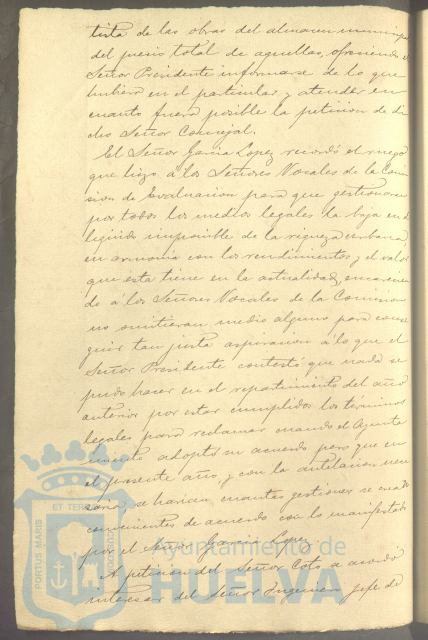 tista de las obras del almacen municipal
del precio total de aquellas, ofreciendo el
Señor Presidente informarse de lo que
hubiera en el particular y atender en
cuanto fuera posible la peticion de di
cho Señor Concejal.
El Señor Garcia Lopez recordó el ruego
que hizo á los Señores Vocales de la Comi
sion de Evaluacion para que gestionaran
por todos los medios legales la baja en el
liquido imponible de la riqueza urbana,
en armonia con los rendimientos y el valor
que esta tiene en la actualidad, encarecien
do á los Señores Vocales de la Comision
no omitieran medio alguno para conse
guir tan justa aspiracion á lo que el
Señor Presidente contestó que nada se
pudo hacer en el repartimiento del año
anterior por estar cumplidos los términos
legales para reclamar cuando el Ayunta
miento adoptó su acuerdo pero que en
el presente año, y con la antelacion nece
saria, se harian cuantas gestiones se crean
convenientes de acuerdo con lo manifestado
por el Señor Garcia Lopez.
A peticion del Señor Coto se acordó
interesar del Señor Ingeniero Jefe de
PORTUS MARIS
ET TERRAE
Ayuntamiento de
HUELVA